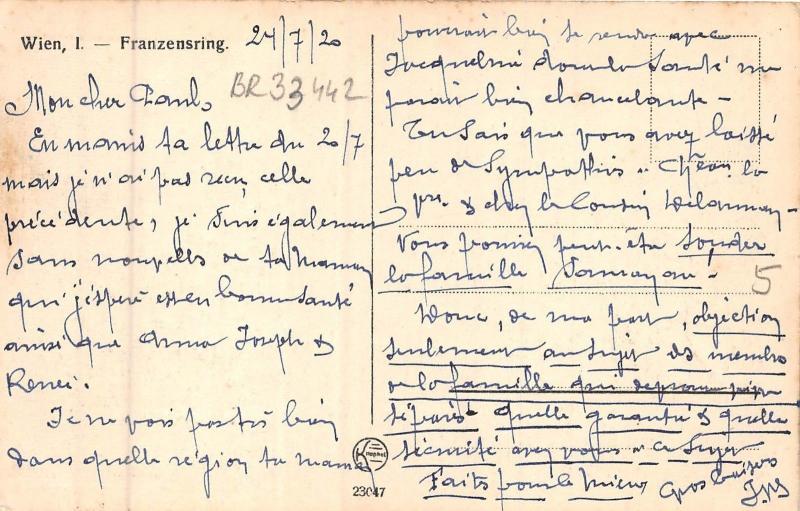 Wien, I. — Franzensring.
24/7/20
BR33442
Mon cher Paul,
En mains ta lettre du 20/7
mais je n'ai pas reçu celle
précédente, je suis également
sans nouvelles de ta Maman
qui j'espère est en bonne santé
ainsi que Anna Joseph &
Renée.
Je ne vois pas très bien
dans quelle région ta maman
pourrait bien se rendre avec
Jacqueline dont la Santé me
parait bien chancelante -
Tu sais que vous avez laissé
peu de Sympathies
& chez le Cousin Delaunay -
Vous pourriez peut-être Sonder
la famille
Donc, de ma part, objection
seulement au Sujet des membres
de la famille qui
séparés quelle garantie & quelle
sécurité avez vous à ce Sujet
Faits pour le mieux
Gros baisers
Knophot
23047
5